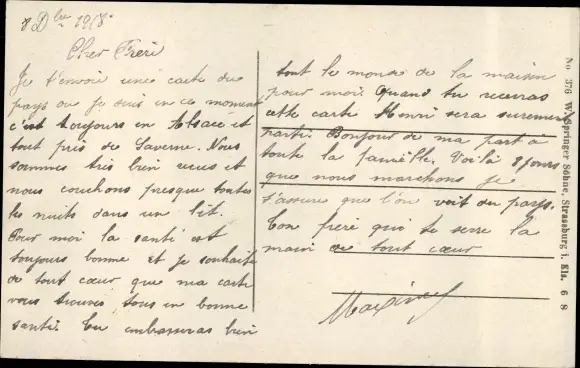 8 Dbre 1918.
Cher Frère
Je t'envoie une carte du
pays ou je suis en ce moment
c'est toujours en Alsace et
tout près de Saverne. Nous
sommes très bien reçus et
nous couchons presque toutes
les nuits dans un lit.
Pour moi la santé est
toujours bonne et je souhaite
de tout cœur que ma carte
vous trouve tous en bonne
santé. Tu embrasseras bien
tout le monde de la maison
pour moi. Quand tu recevras
cette carte Henri sera surement
parti. Bonjour de ma part à
toute la famille. Voilà 8 jours
que nous marchons je
t'assure que l'on voit du pays.
Ton frère qui te serre la
main de tout cœur
No 376 W. Springer Söhne, Strassburg i. Els. 6 8